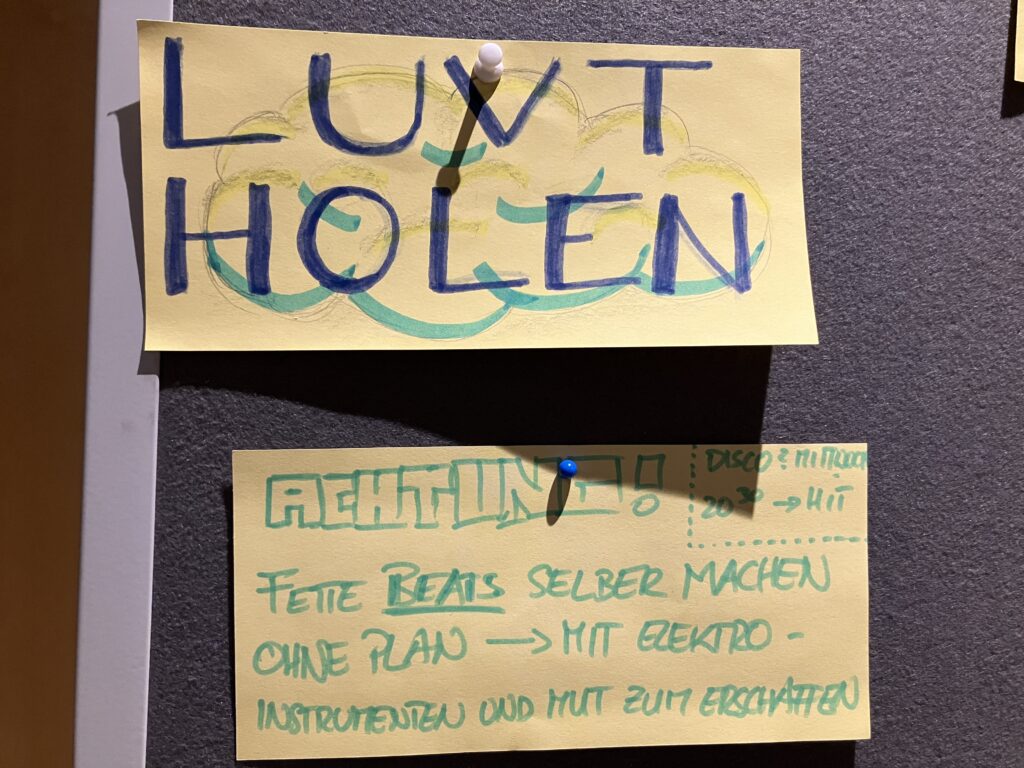 LUVT
HOLEN
ACHTUNG!
DISCO? MITTWOCH
20³⁰ → MIT
FETTE BEATS SELBER MACHEN
OHNE PLAN → MIT ELEKTRO-
INSTRUMENTEN UND MUT ZUM ERSCHAFFEN